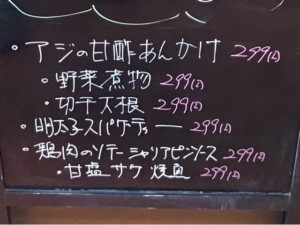 ・アジの甘酢あんかけ 299円
・野菜煮物 299円
・切干大根 299円
・明太子スパゲティ ー 299円
・鶏肉のソテーシャリアピンソース 299円
・甘塩サケ 焼魚 299円